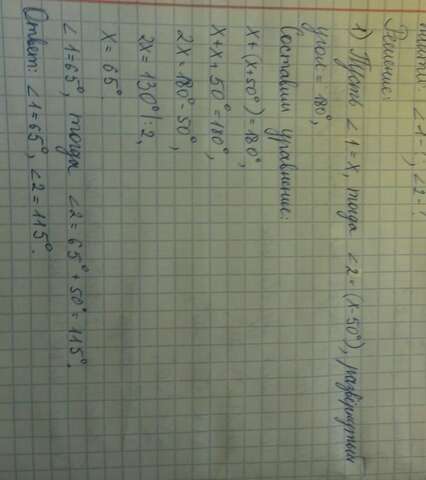 ∠1=?, ∠2=?
Решение:
1) Пусть ∠1=x, тогда ∠2=(x-50°), развёрнутый
угол = 180°,
Составим уравнение:
x+(x+50°)=180°,
x+x+50°=180°,
2x=180°-50°,
2x=130°|:2,
x=65°.
∠1=65°, тогда ∠2=65°+50°=115°.
Ответ: ∠1=65°, ∠2=115°.